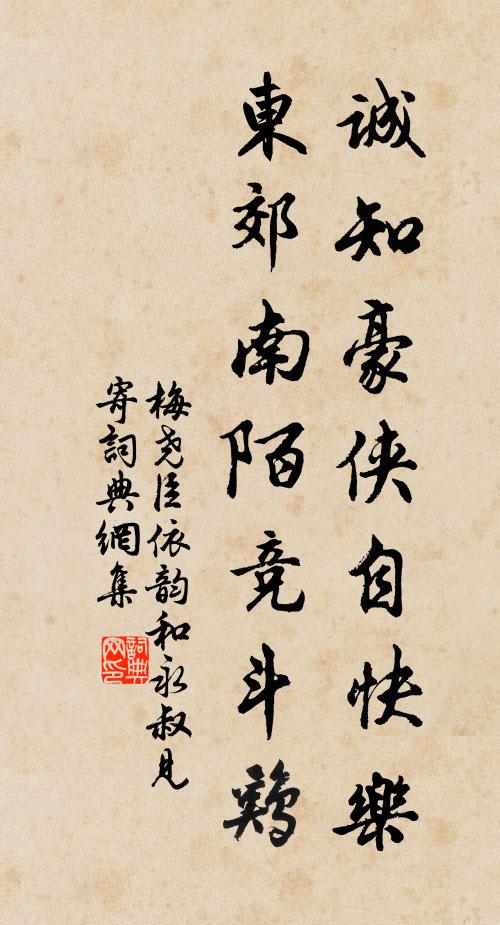 誠知豪俠自快樂
東郊南陌竞斗鷄
梅尧臣依韵和永叔見
寄詞典網集
詞典网印